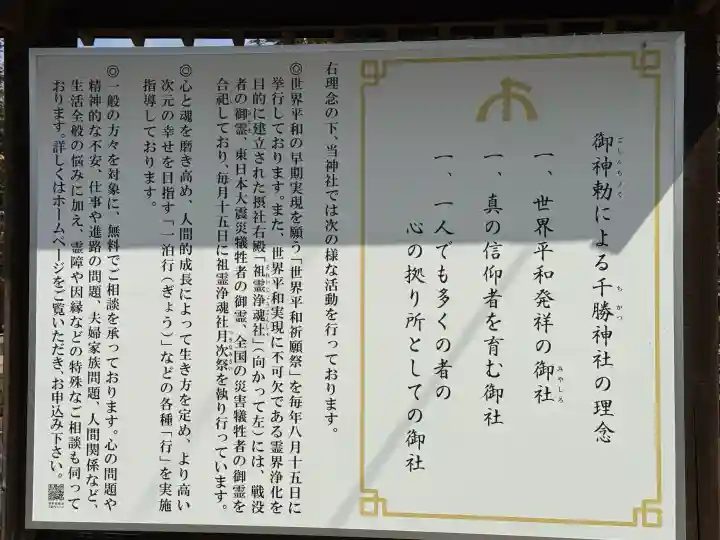 御神勅による千勝神社の理念
ごしんちょく
ちかつ
一、世界平和発祥の御社
みやしろ
一、真の信仰者を育む御社
一、一人でも多くの者の
心の拠り所としての御社
右理念の下、当神社では次の様な活動を行っております。
◎世界平和の早期実現を願う「世界平和祈願祭」を毎年八月十五日に
挙行しております。また、世界平和実現に不可欠である霊界浄化を
目的に建立された摂社右殿「祖霊浄魂社」（向かって左）には、戦没
者の御霊、東日本大震災犠牲者の御霊、全国の災害犠牲者の御霊を
合祀しており、毎月十五日に祖霊浄魂社月次祭を執り行っています。
◎心と魂を磨き高め、人間的成長によって生き方を定め、より高い
次元の幸せを目指す「一泊行（ぎょう）」などの各種「行」を実施
指導しております。
◎一般の方々を対象に、無料でご相談を承っております。心の問題や
精神的な不安、仕事や進路の問題、夫婦家族問題、人間関係など、
生活全般の悩みに加え、霊障や因縁などの特殊なご相談も伺って
おります。詳しくはホームページをご覧いただき、お申込み下さい。